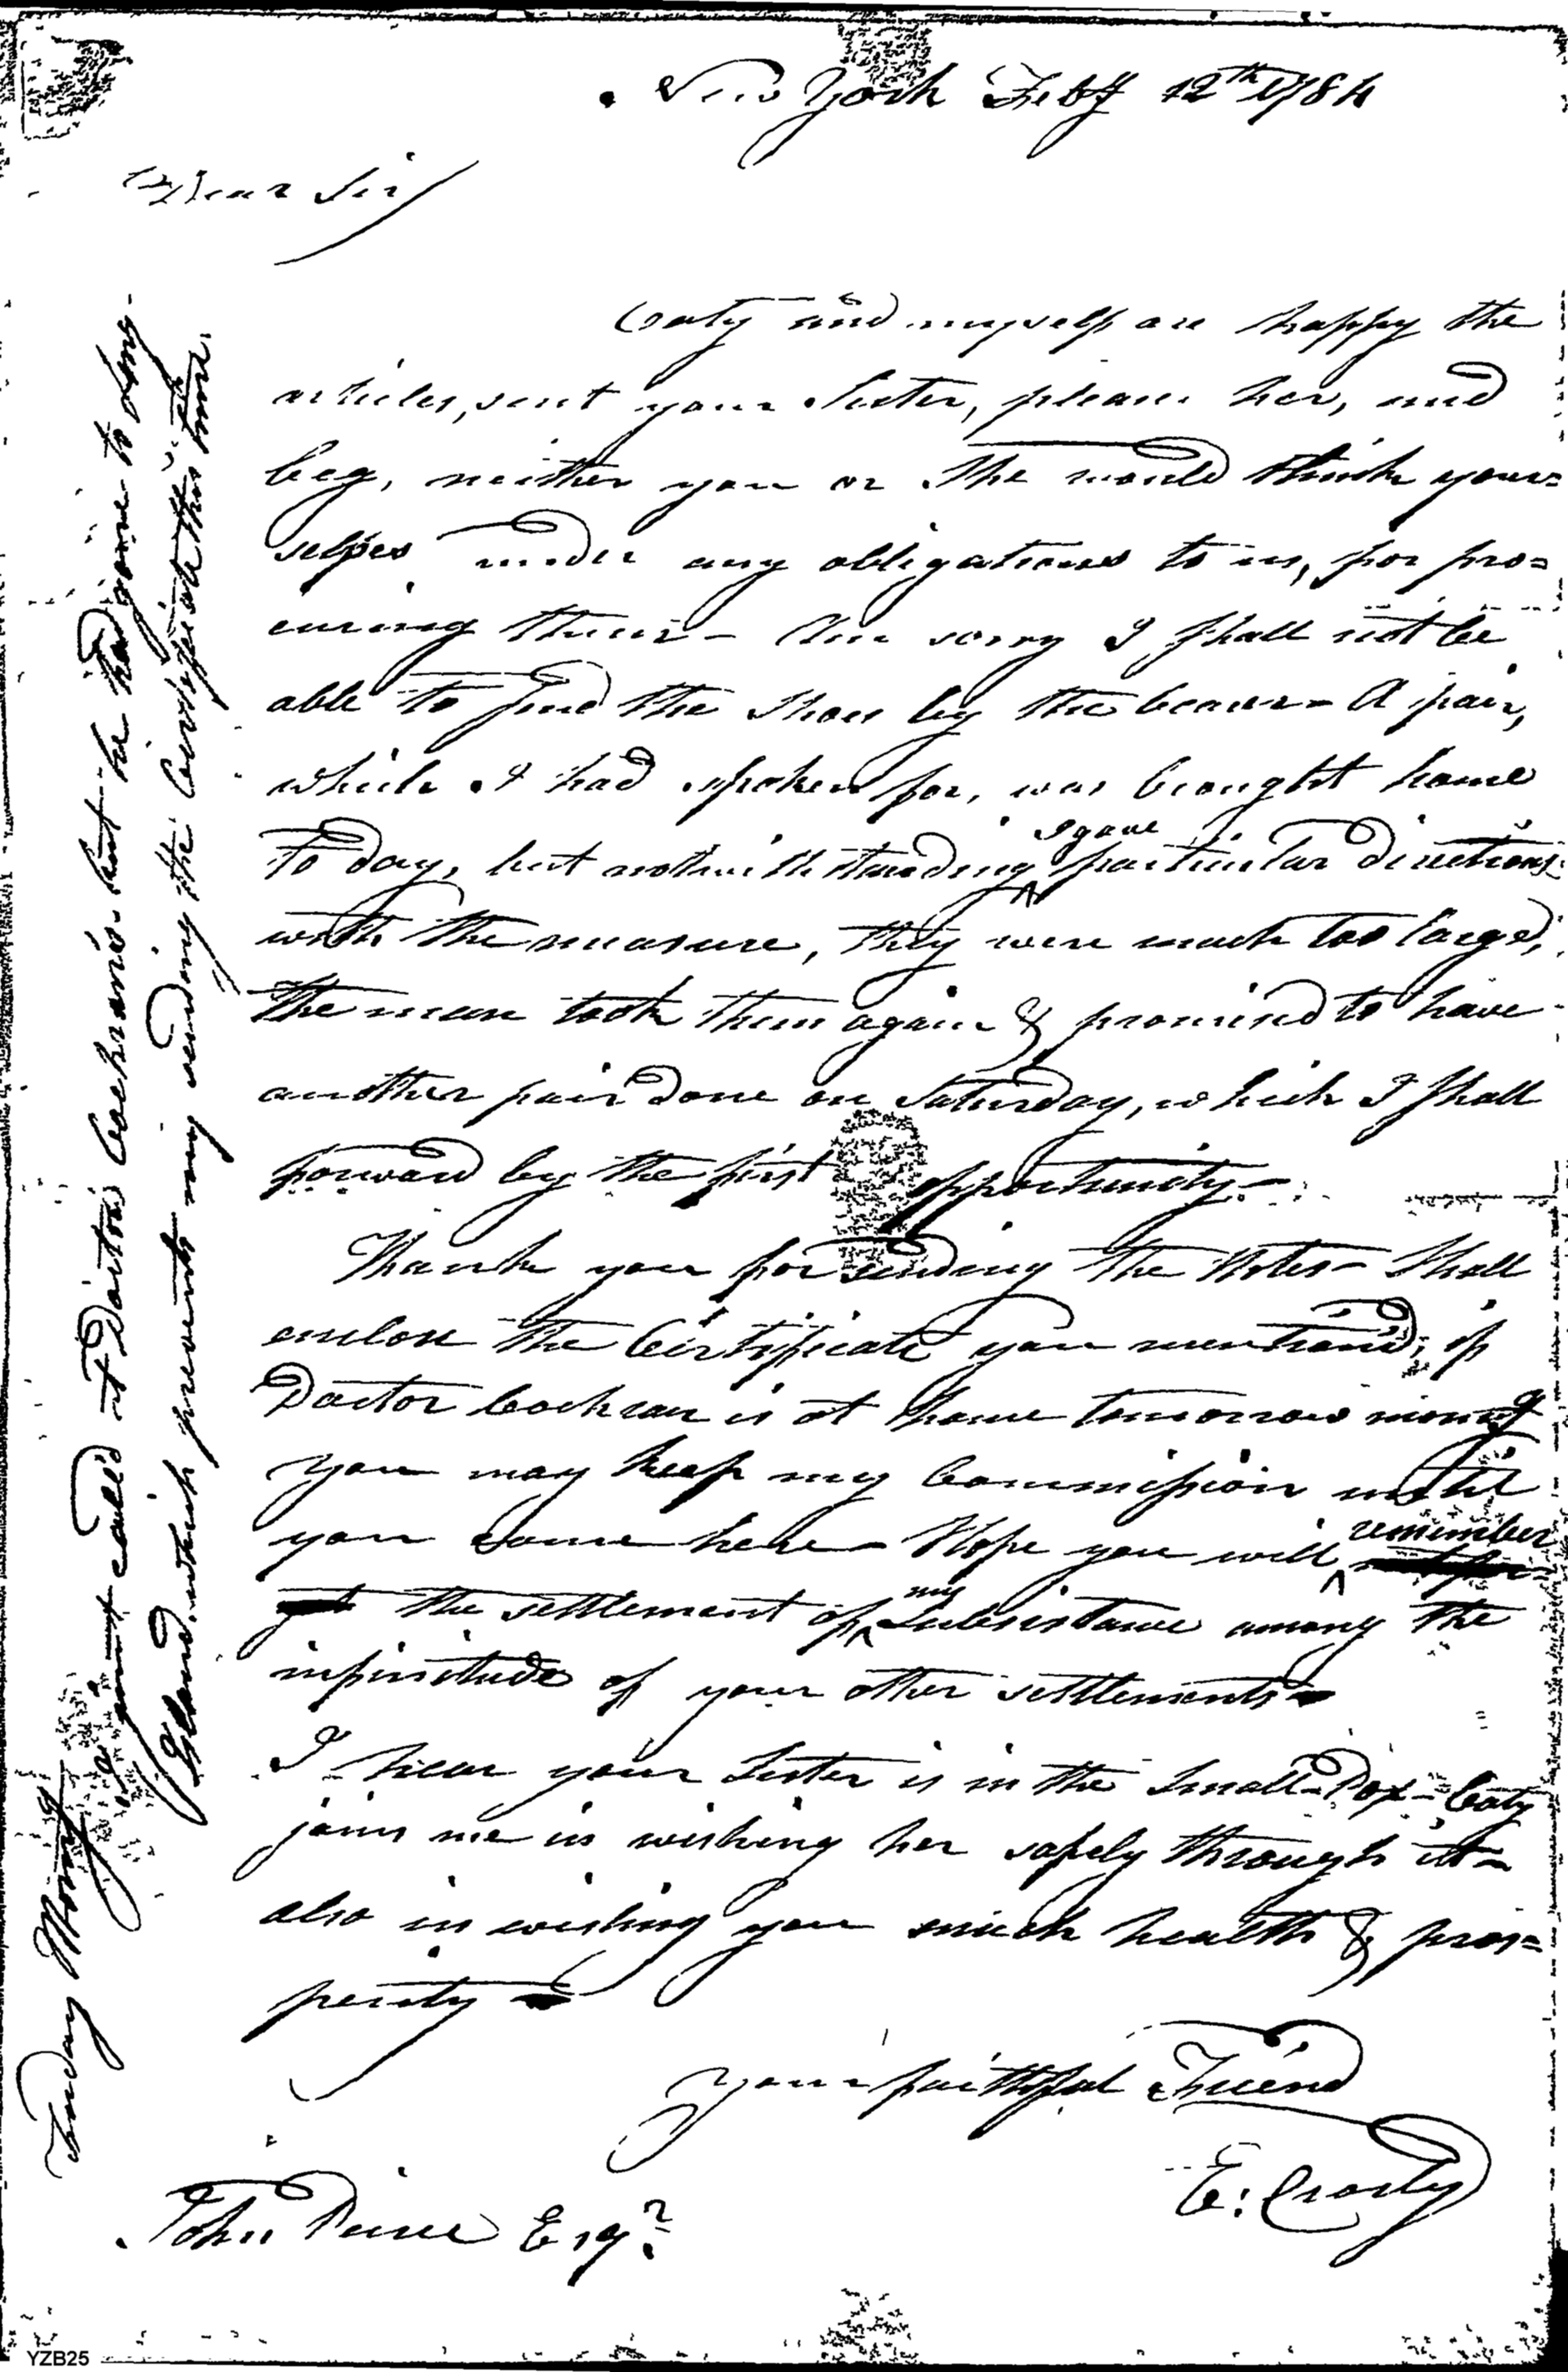 New York Feby 12th 1784
Dear Sir
Caty and myself are happy the
articles, sent your Sister, please her, and
beg, neither you or She would think your=
selfes under any obligations to us, for pro=
curing them – Am sorry I shall not be
able to send the Shoes by the bearer – A pair,
which I had spoken for, was brought home
to day, but notwithstanding I gave particular directions
with the measure, they were much too large,
the man took them again & promised to have
another pair done on Saturday, which I shall
forward by the first opportunity –
Thank you for sending the Notes – Shall
enclose the Certificate you mention'd, if
Doctor Cochran is at home tomorrow morng
You may keep my Commission until
you come here – Hope you will remember
the settlement of my Subsistance among the
infinitude of your other settlements –
I hear your Sister is in the Small-Pox – Caty
joins me in wishing her safely through it –
also in wishing you much health & pros=
perity –
Your faithful Friend
E: Crosby
John Peirce Esqr.
Friday Morng
I just call'd at Doctor Cochran's but he had gone to Long
Island, which prevents my sending the Certificate this time.
YZB25